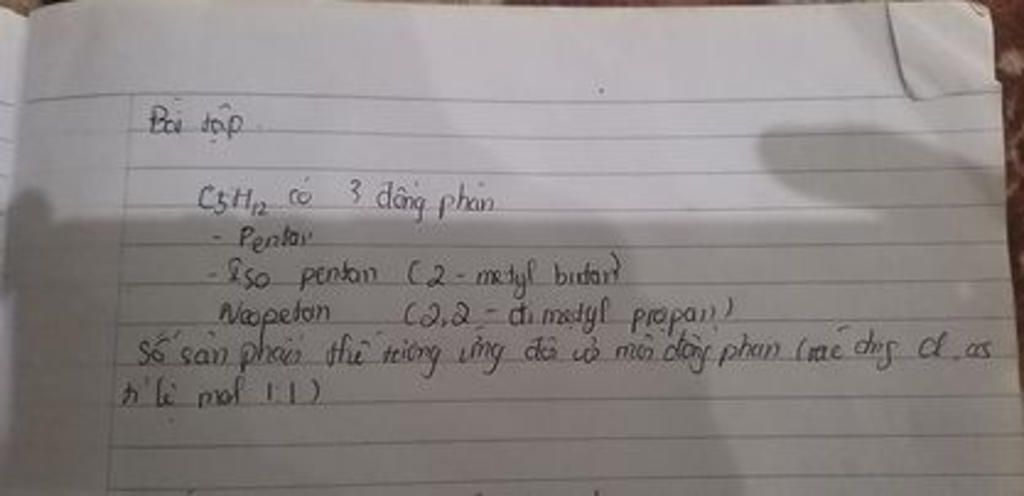 Bài tập
C5H12 có 3 đồng phân
- Pentan
- Iso pentan (2-metyl butan)
Neopetan (2,2-đimetyl propan)
Số sản phẩm thế tương ứng đối với mỗi đồng phân (tác dụng Cl, as
tỉ lệ mol 1:1)